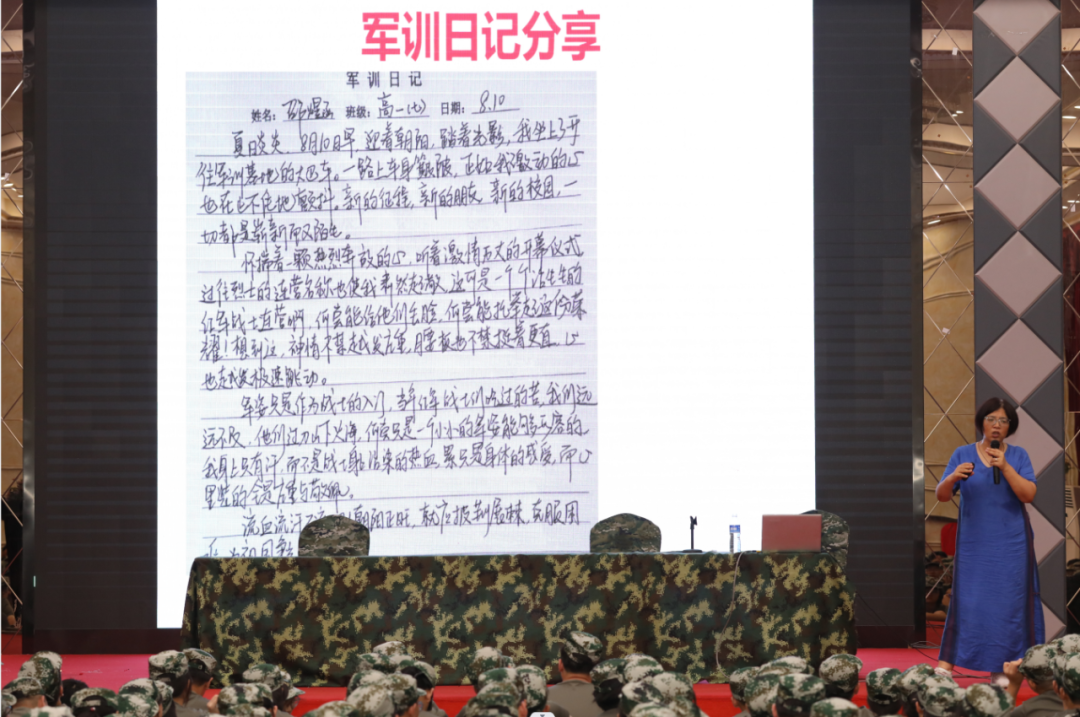 军训日记分享
军训日记
姓名：邵煜函 班级：高一(七) 日期：8.10
夏日炎炎，8月10日早，迎着朝阳，踏着光影，我坐上了开
往军训基地的大巴车。一路上车身颠簸，正如我激动的心
也在不住地颤抖。新的征程，新的朋友，新的校园，一
切都是崭新而又陌生。
怀揣着一颗热烈奔放的心，听着激情万丈的开幕仪式
过往烈士的连营名称也使我肃然起敬，这可是一个个活生生的
红军战士连营啊，何尝能给他们丢脸，何尝能托举起这份荣
耀！想到这，神情不禁越发庄重，腰板也不禁挺着更直，心
也越发极速跳动。
军姿只是作为战士的入门，当年红军战士们吃过的苦，我们远
远不及，他们过刀山下火海，何尝只是一个小小的军姿能够形容的
我身上只有汗，而不是战士身沾染的热血，累只是身体的感受，而心
里装的全是庄重与敬佩。
流血流汗 朝阳正旺，就应披荆展棘，克服困